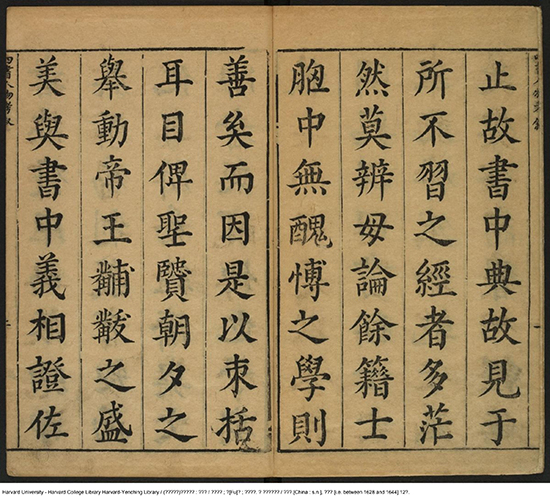 止故書中典故見于
所不習之經者多茫
然莫辨毋論餘籍士
胸中無醜愽之學則
善矣而因是以束括
耳目俾聖贒朝夕之
舉動帝王黼黻之盛
美與書中義相證佐
Harvard University - Harvard College Library Harvard-Yenching Library / (?????)????? : ??? / ???? ; ?[Fu]? ; ????. ? ?????? / ??? [China : s.n.], ??? [i.e. between 1628 and 1644] 12?.